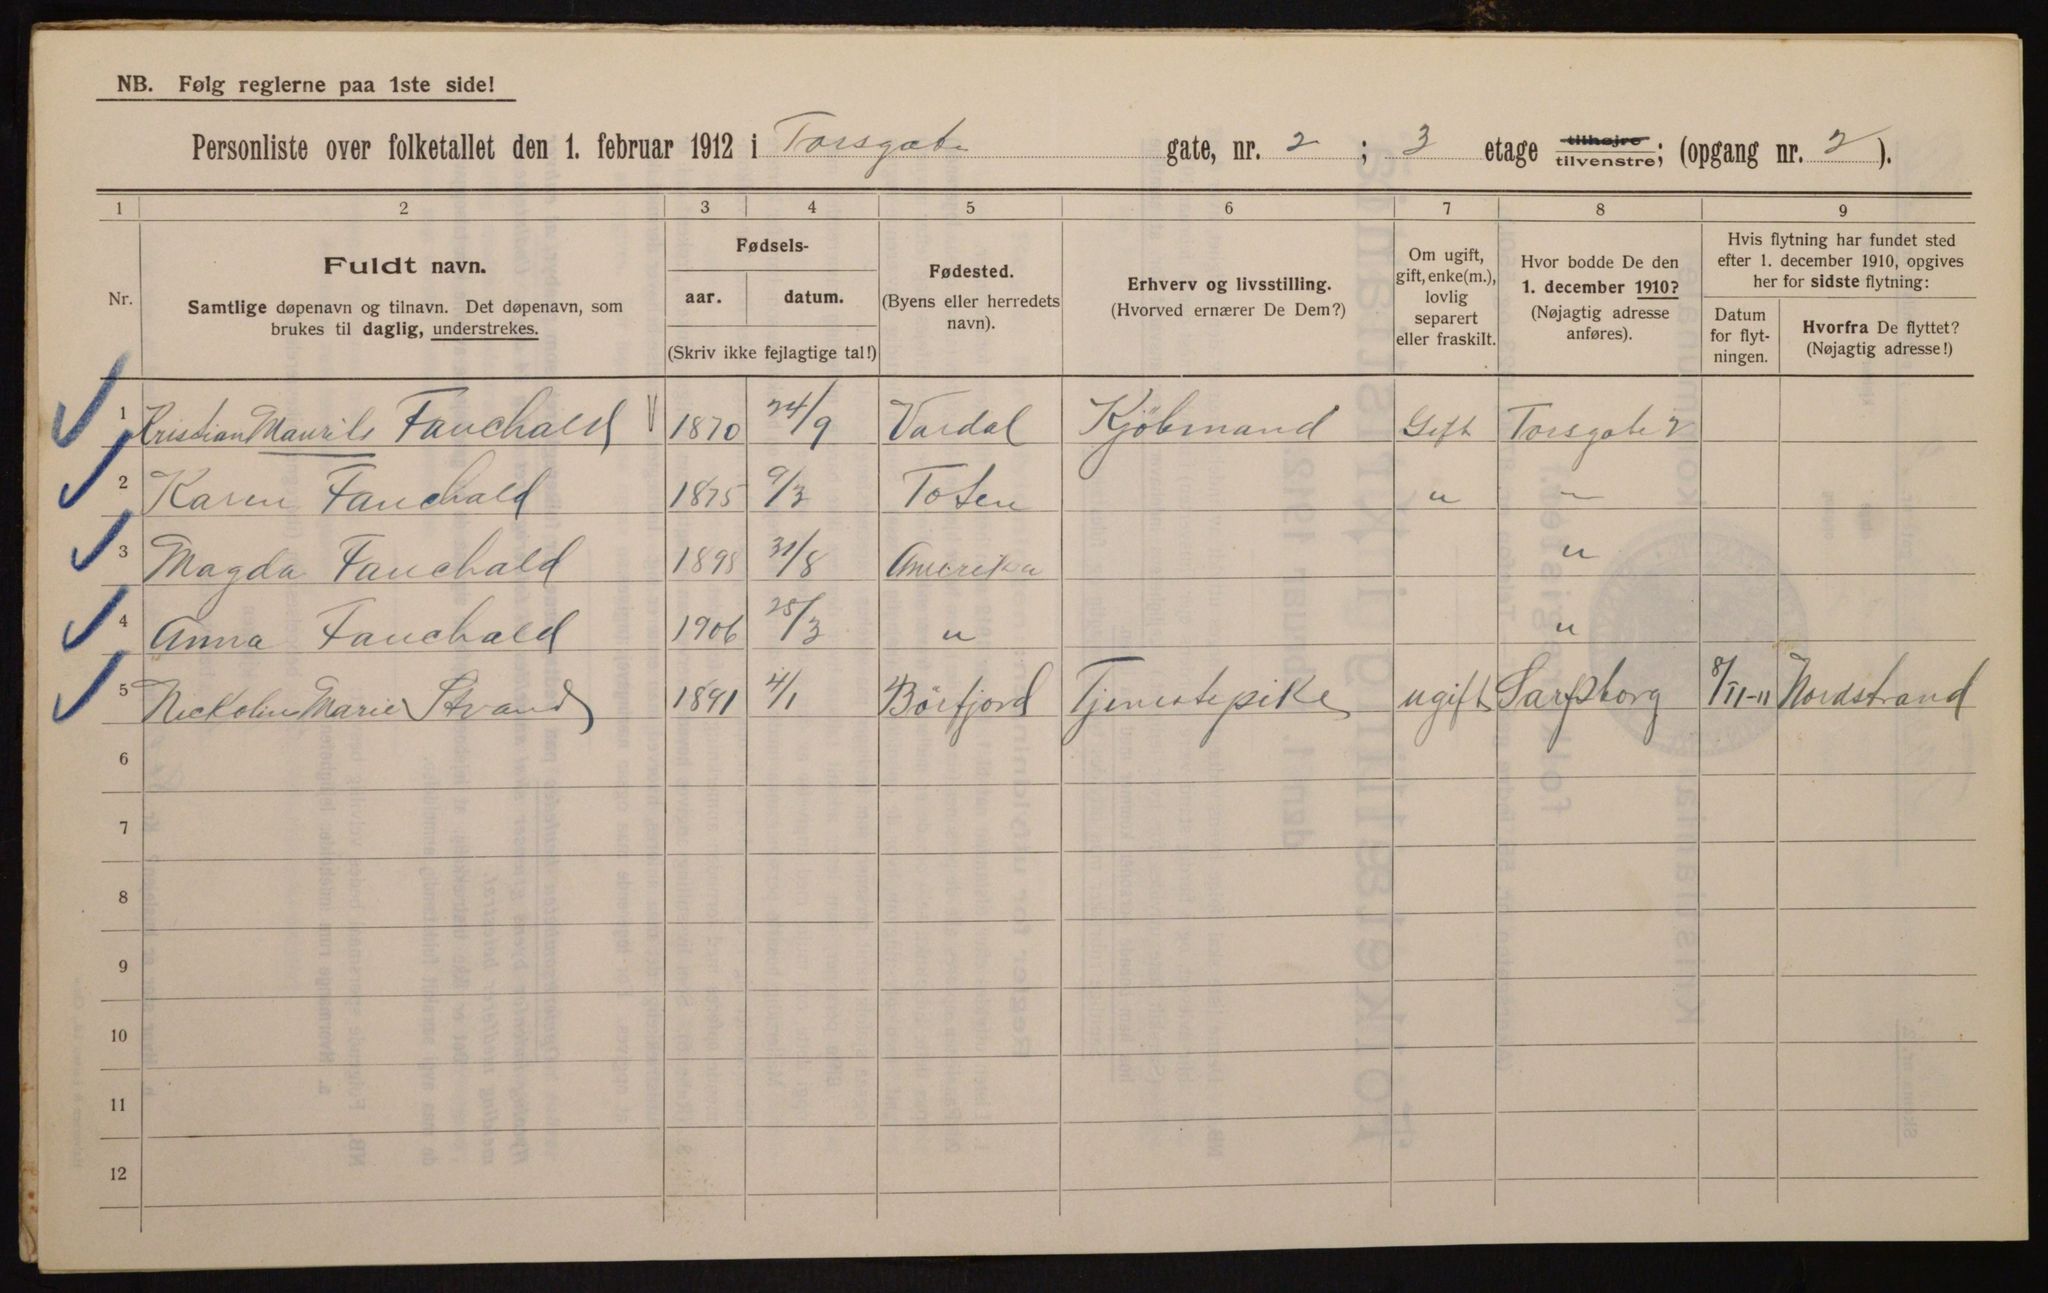 NB. Følg reglerne paa 1ste side!
Personliste over folketallet den 1. februar 1912 i Torsgate gate, nr. 2 ; 3 etage tilhøjre tilvenstre; (opgang nr. 2 ).
1 2 3 4 5 6 7 8 9
Nr.
Fuldt navn.
Samtlige døpenavn og tilnavn. Det døpenavn, som
brukes til daglig, understrekes.
Fødsels-
aar. datum.
(Skriv ikke fejlagtige tal!)
Fødested.
(Byens eller herredets
navn).
Erhverv og livsstilling.
(Hvorved ernærer De Dem?)
Om ugift,
gift, enke(m.),
lovlig
separert
eller fraskilt.
Hvor bodde De den
1. december 1910?
(Nøjagtig adresse
anføres).
Hvis flytning har fundet sted
efter 1. december 1910, opgives
her for sidste flytning:
Datum
for flyt-
ningen.
Hvorfra De flyttet?
(Nøjagtig adresse!)
1 Kristian Fauchald 1870 24/9 Vardal Kjöbmand Gift Torsgate 2
2 Karen Fauchald 1875 9/3 Toten " -
3 Magda Fauchald 1898 31/8 Amerika "
4 Anna Fauchald 1906 25/3 " "
5 Nickoline Marie Strand 1891 4/1 Börfjord Tjenestepike ugift Sarpsborg 8/II-11 Nordstrand
6
7
8
9
10
11
12